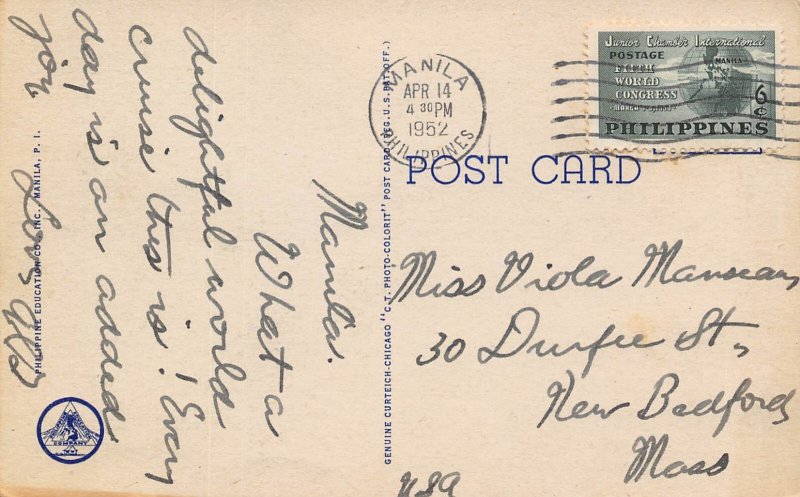 Manila.
What a
delightful world
cruise this is! Every
day is an added
joy.
PHILIPPINE EDUCATION CO., INC., MANILA, P. I.
COMPANY
GENUINE CURTEICH-CHICAGO "C.T. PHOTO-COLORIT" POST CARD (REG. U.S. PAT. OFF.)
MANILA
APR 14
4 30 PM
1952
PHILIPPINES
Junior Chamber International
POSTAGE
FIFTH
WORLD
CONGRESS
MANILA
6c
PHILIPPINES
POST CARD
Miss Viola Manseau
30 Durfee St,
New Bedford
Mass
USA